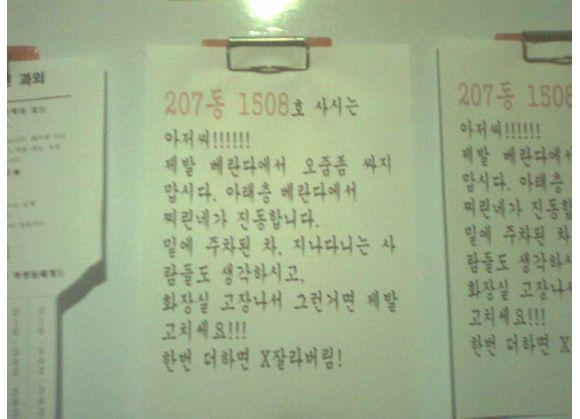 과외
207동 1508호 사시는
아저씨!!!!!!
제발 베란다에서 오줌좀 싸지
맙시다. 아래층 베란다에서
찌린네가 진동합니다.
밑에 주차된 차, 지나다니는 사
람들도 생각하시고,
화장실 고장나서 그런거면 제발
고치세요!!!
한번 더하면 X잘라버림!
207동 1508
아저씨!!!!!!
제발 베란다에서
맙시다. 아래층
찌린네가 진동합
밑에 주차된 차
람들도 생각하시
화장실 고장나
고치세요!!!
한번 더하면 X